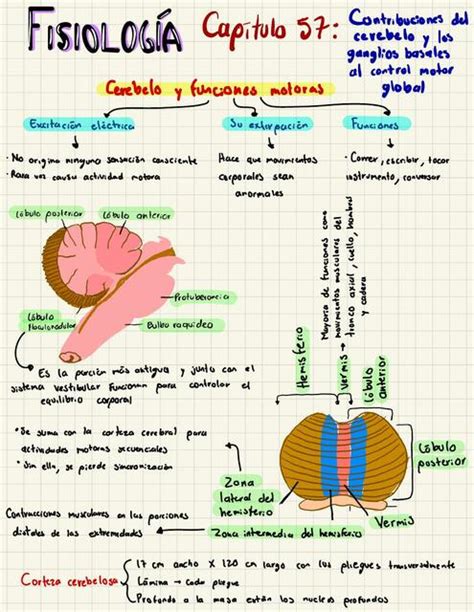 FISIOLOGÍA
Capítulo 57:
Contribuciones del
cerebelo y los
ganglios basales
al control motor
global
Cerebelo y funciones motoras
Excitación eléctrica
Su extirpación
Funciones
· No origina ninguna sensación consciente
· Rara vez causa actividad motora
Hace que movimientos
corporales sean
anormales
· Correr, escribir, tocar
instrumento, conversar
Lóbulo posterior
Lóbulo anterior
Protuberancia
Bulbo raquídeo
Lóbulo
floculonodular
Mayoría de funciones como
movimientos musculares del
tronco axial, cuello, hombros
y cadera
Hemisferio
Vermis
Lóbulo
anterior
Es la porción más antigua y junto con el
sistema vestibular funcionan para controlar el
equilibrio corporal
· Se suma con la corteza cerebral para
actividades motoras secuenciales
· Sin ella, se pierde sincronización
Lóbulo
posterior
Zona
lateral del
hemisferio
Contracciones musculares en las porciones
distales de las extremidades
Zona intermedia del hemisferio
Vermis
Corteza cerebelosa
17 cm ancho X 120 cm largo con los pliegues transversalmente
Lámina → Cada pliegue
Profundo a la masa están los núcleos profundos